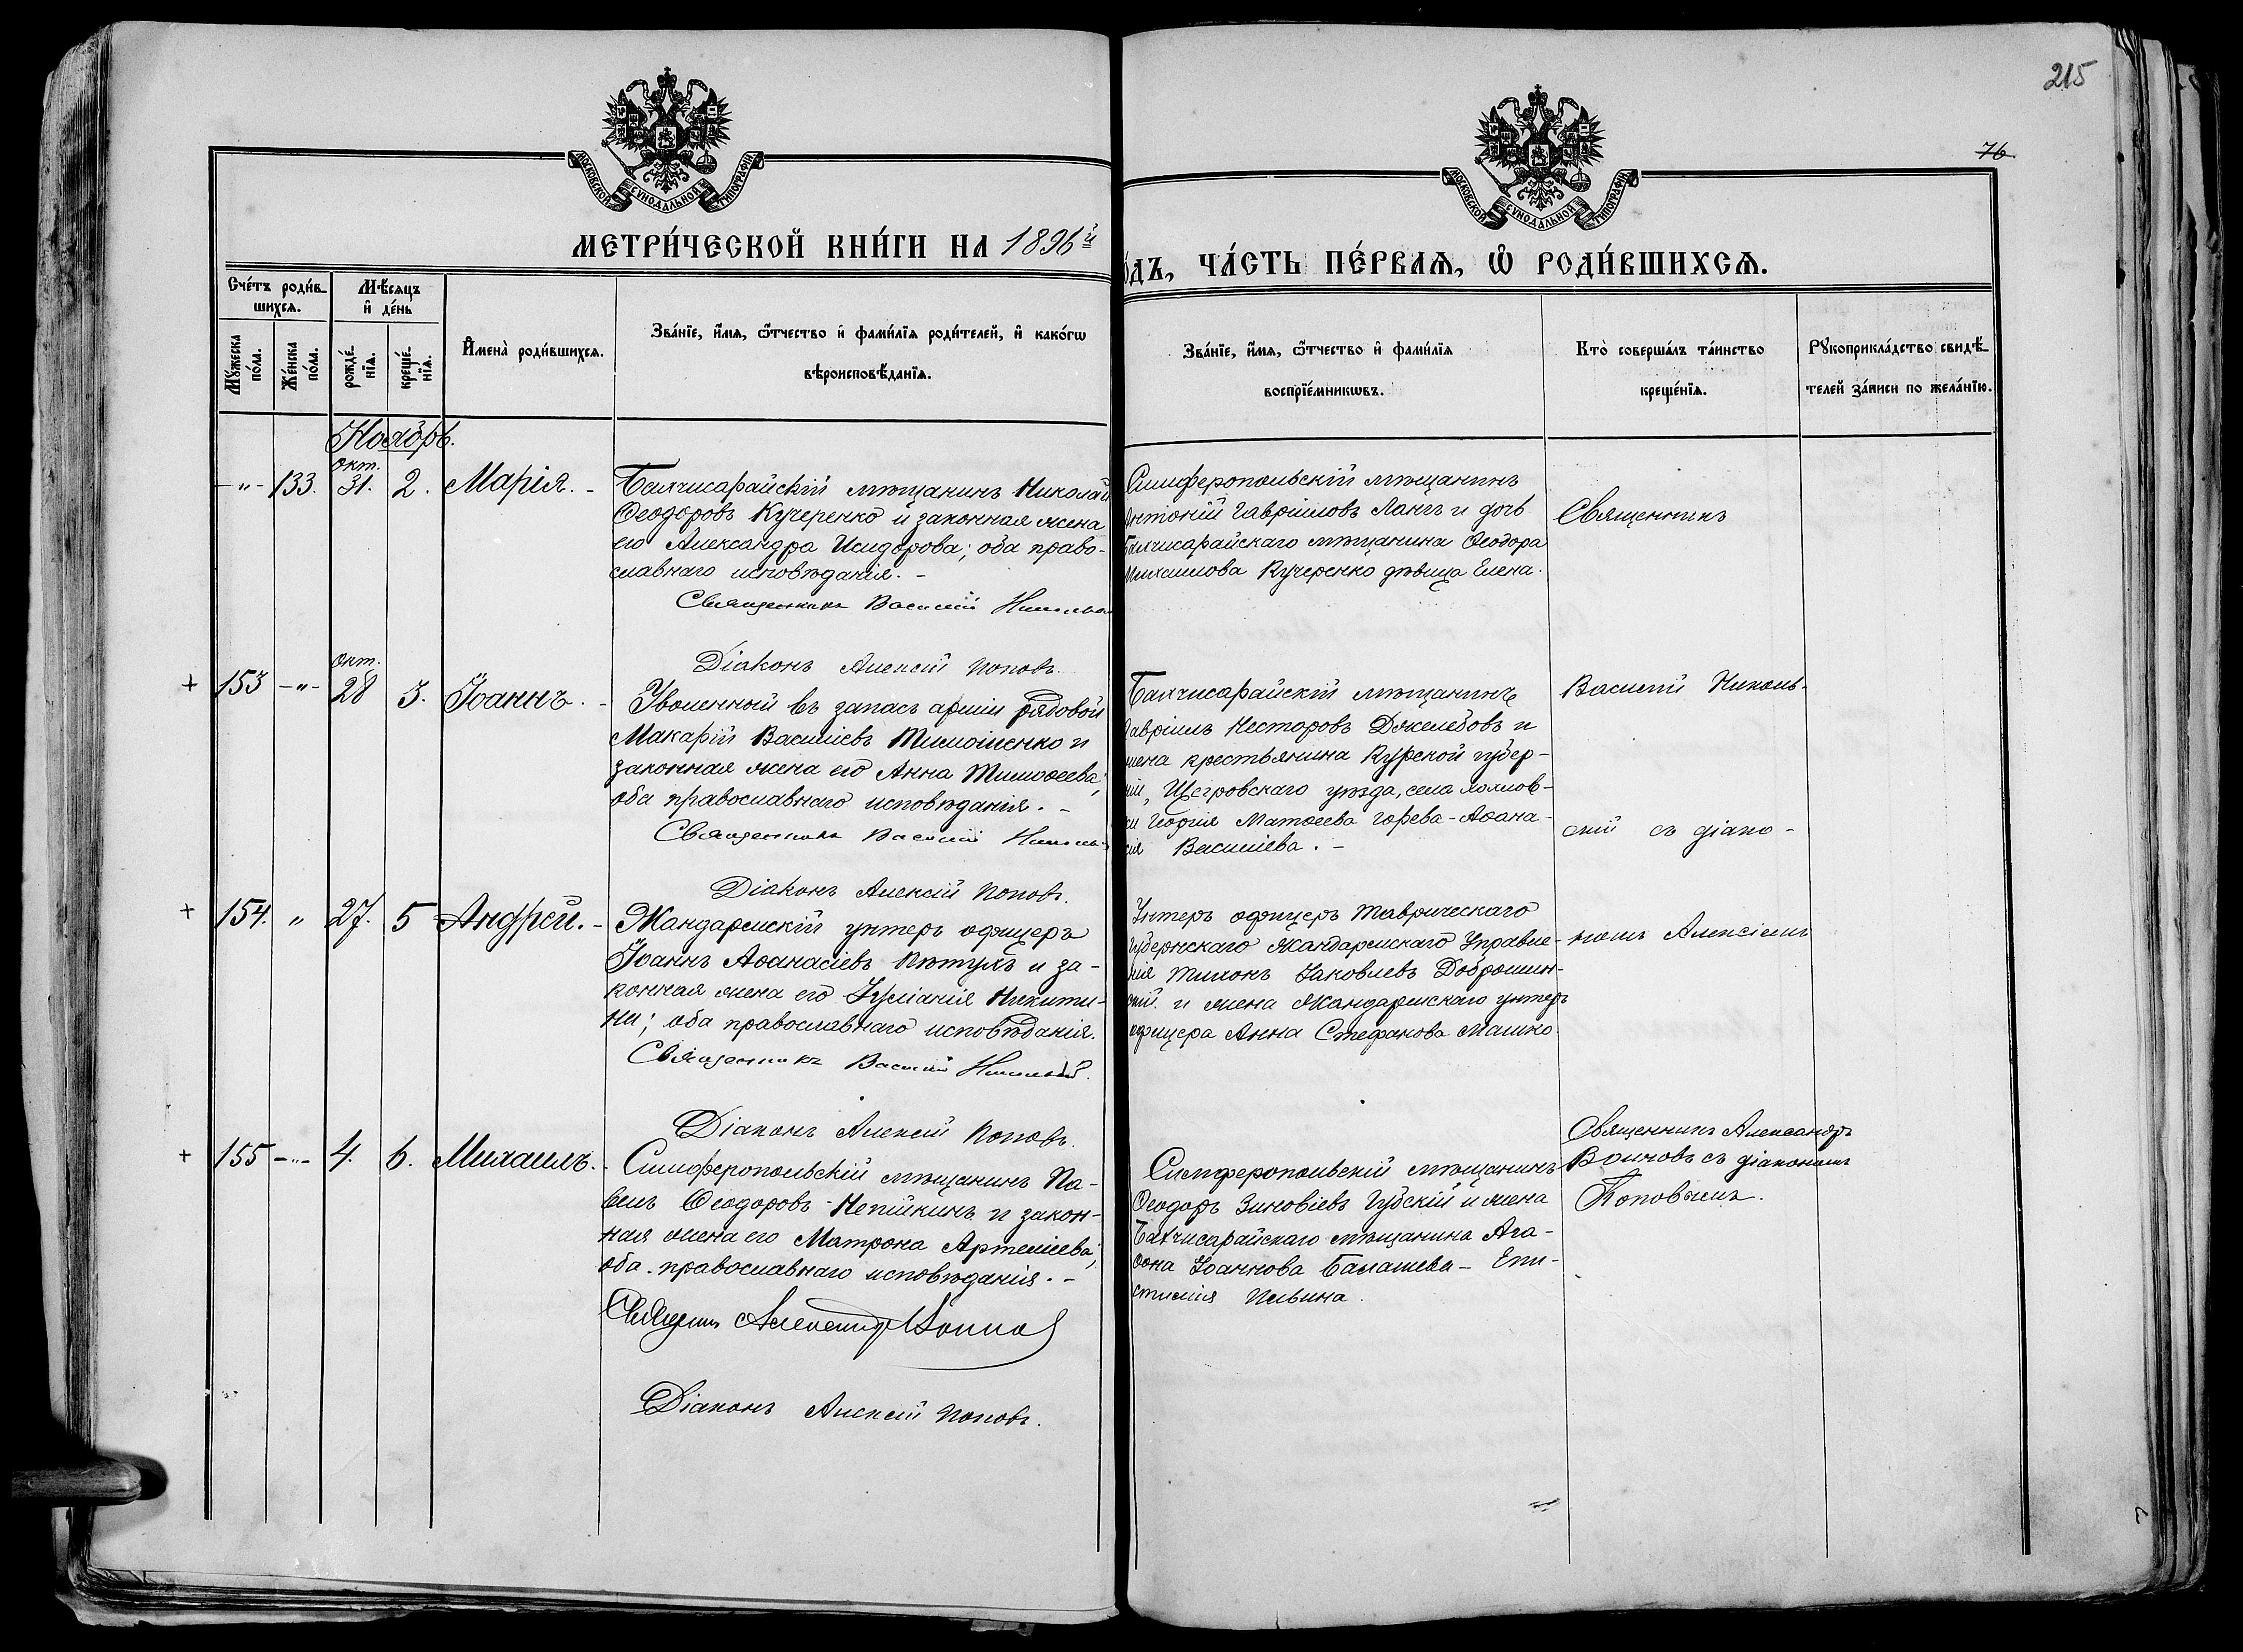 215
76
МОСКОВСКОЙ СѴНОДАЛЬНОЙ ТИПОГРАФІИ
МОСКОВСКОЙ СѴНОДАЛЬНОЙ ТИПОГРАФІИ
МЕТРИ́ЧЕСКОЙ КНИ́ГИ НА 1896й
ѡ́ДЪ, ЧА́СТЬ ПЕ́РВАѦ, Ѡ҆ РОДИ́ВШИХСѦ.
Сче́тъ роди́в-
шихсѧ.
Мѣ́сѧцъ
и҆ де́нь
Мꙋ́жеска по́ла.
Же́нска по́ла.
рожде́-
нїѧ.
креще́-
нїѧ.
И҆мена̀ роди́вшихсѧ.
Зва́нїе, и҆́мѧ, ѻ҆́тчество и҆ фами́лїѧ роди́телей, и҆ како́гѡ
вѣроисповѣ́данїѧ.
Зва́нїе, и҆́мѧ, ѻ҆́тчество и҆ фами́лїѧ
воспрїе́мникѡвъ.
Кто̀ соверша́лъ та́инство
креще́нїѧ.
Рꙋкоприкла́дство свидѣ́-
телей за́писи по жела́нїю.
Ноябрь.
окт.
-"- 133. 31. 2. Марія. -
Бахчисарайскій мѣщанинъ Николай
Ѳеодоровъ Кучеренко и законная жена
его Александра Исидорова; оба право-
славнаго исповѣданія. -
Священникъ Василій
Діаконъ Алексій Поповъ.
Симферопольскій мѣщанинъ
Антоній Гавріиловъ Лангъ и дочь
Бахчисарайскаго мѣщанина Ѳеодора
Михаилова Кучеренко дѣвица Елена.
Священникъ
окт.
+ 153 -"- 28 3. Іоаннъ. -
Уволенный въ запасъ арміи рядовой
Макарій Василіевъ Тимошенко и
законная жена его Анна Тимоѳеева;
оба православнаго исповѣданія. -
Священникъ Василій
Діаконъ Алексій Поповъ.
Бахчисарайскій мѣщанинъ
Гавріилъ Несторовъ Джелебовъ и
жена крестьянина Курской губер-
ніи, Щегровскаго уѣзда, села
Георгія Матѳеева Горева - Аѳана-
сія Василіева. -
Василій Николь-
скій съ діако-
+ 154. " 27. 5 Андрей. -
Жандармскій унтеръ офицеръ
Іоаннъ Аѳанасіевъ Пѣтухъ и за-
конная жена его Іуліанія Никити-
на; оба православнаго исповѣданія.
Священникъ Василій
Діаконъ Алексій Поповъ.
Унтеръ офицеръ Таврическаго
Губернскаго Жандармскаго Управле-
нія Тихонъ Іаковлевъ Доброшин-
скій и жена Жандармскаго унтеръ
офицера Анна Стефанова Машко
номъ Алексіемъ
+ 155 -"- 4. 6. Михаилъ. -
Симферопольскій мѣщанинъ Па-
велъ Ѳеодоровъ Непійкинъ и закон-
ная жена его Матрона Артеміева;
оба православнаго исповѣданія. -
Діаконъ Алексій Поповъ.
Симферопольскій мѣщанинъ
Ѳеодоръ Зиновіевъ Губскій и жена
Бахчисарайскаго мѣщанина Ага-
ѳона Іоаннова Балашева - Епи-
стимія Ильина.
Священникъ Александръ
съ діакономъ
Поповымъ.